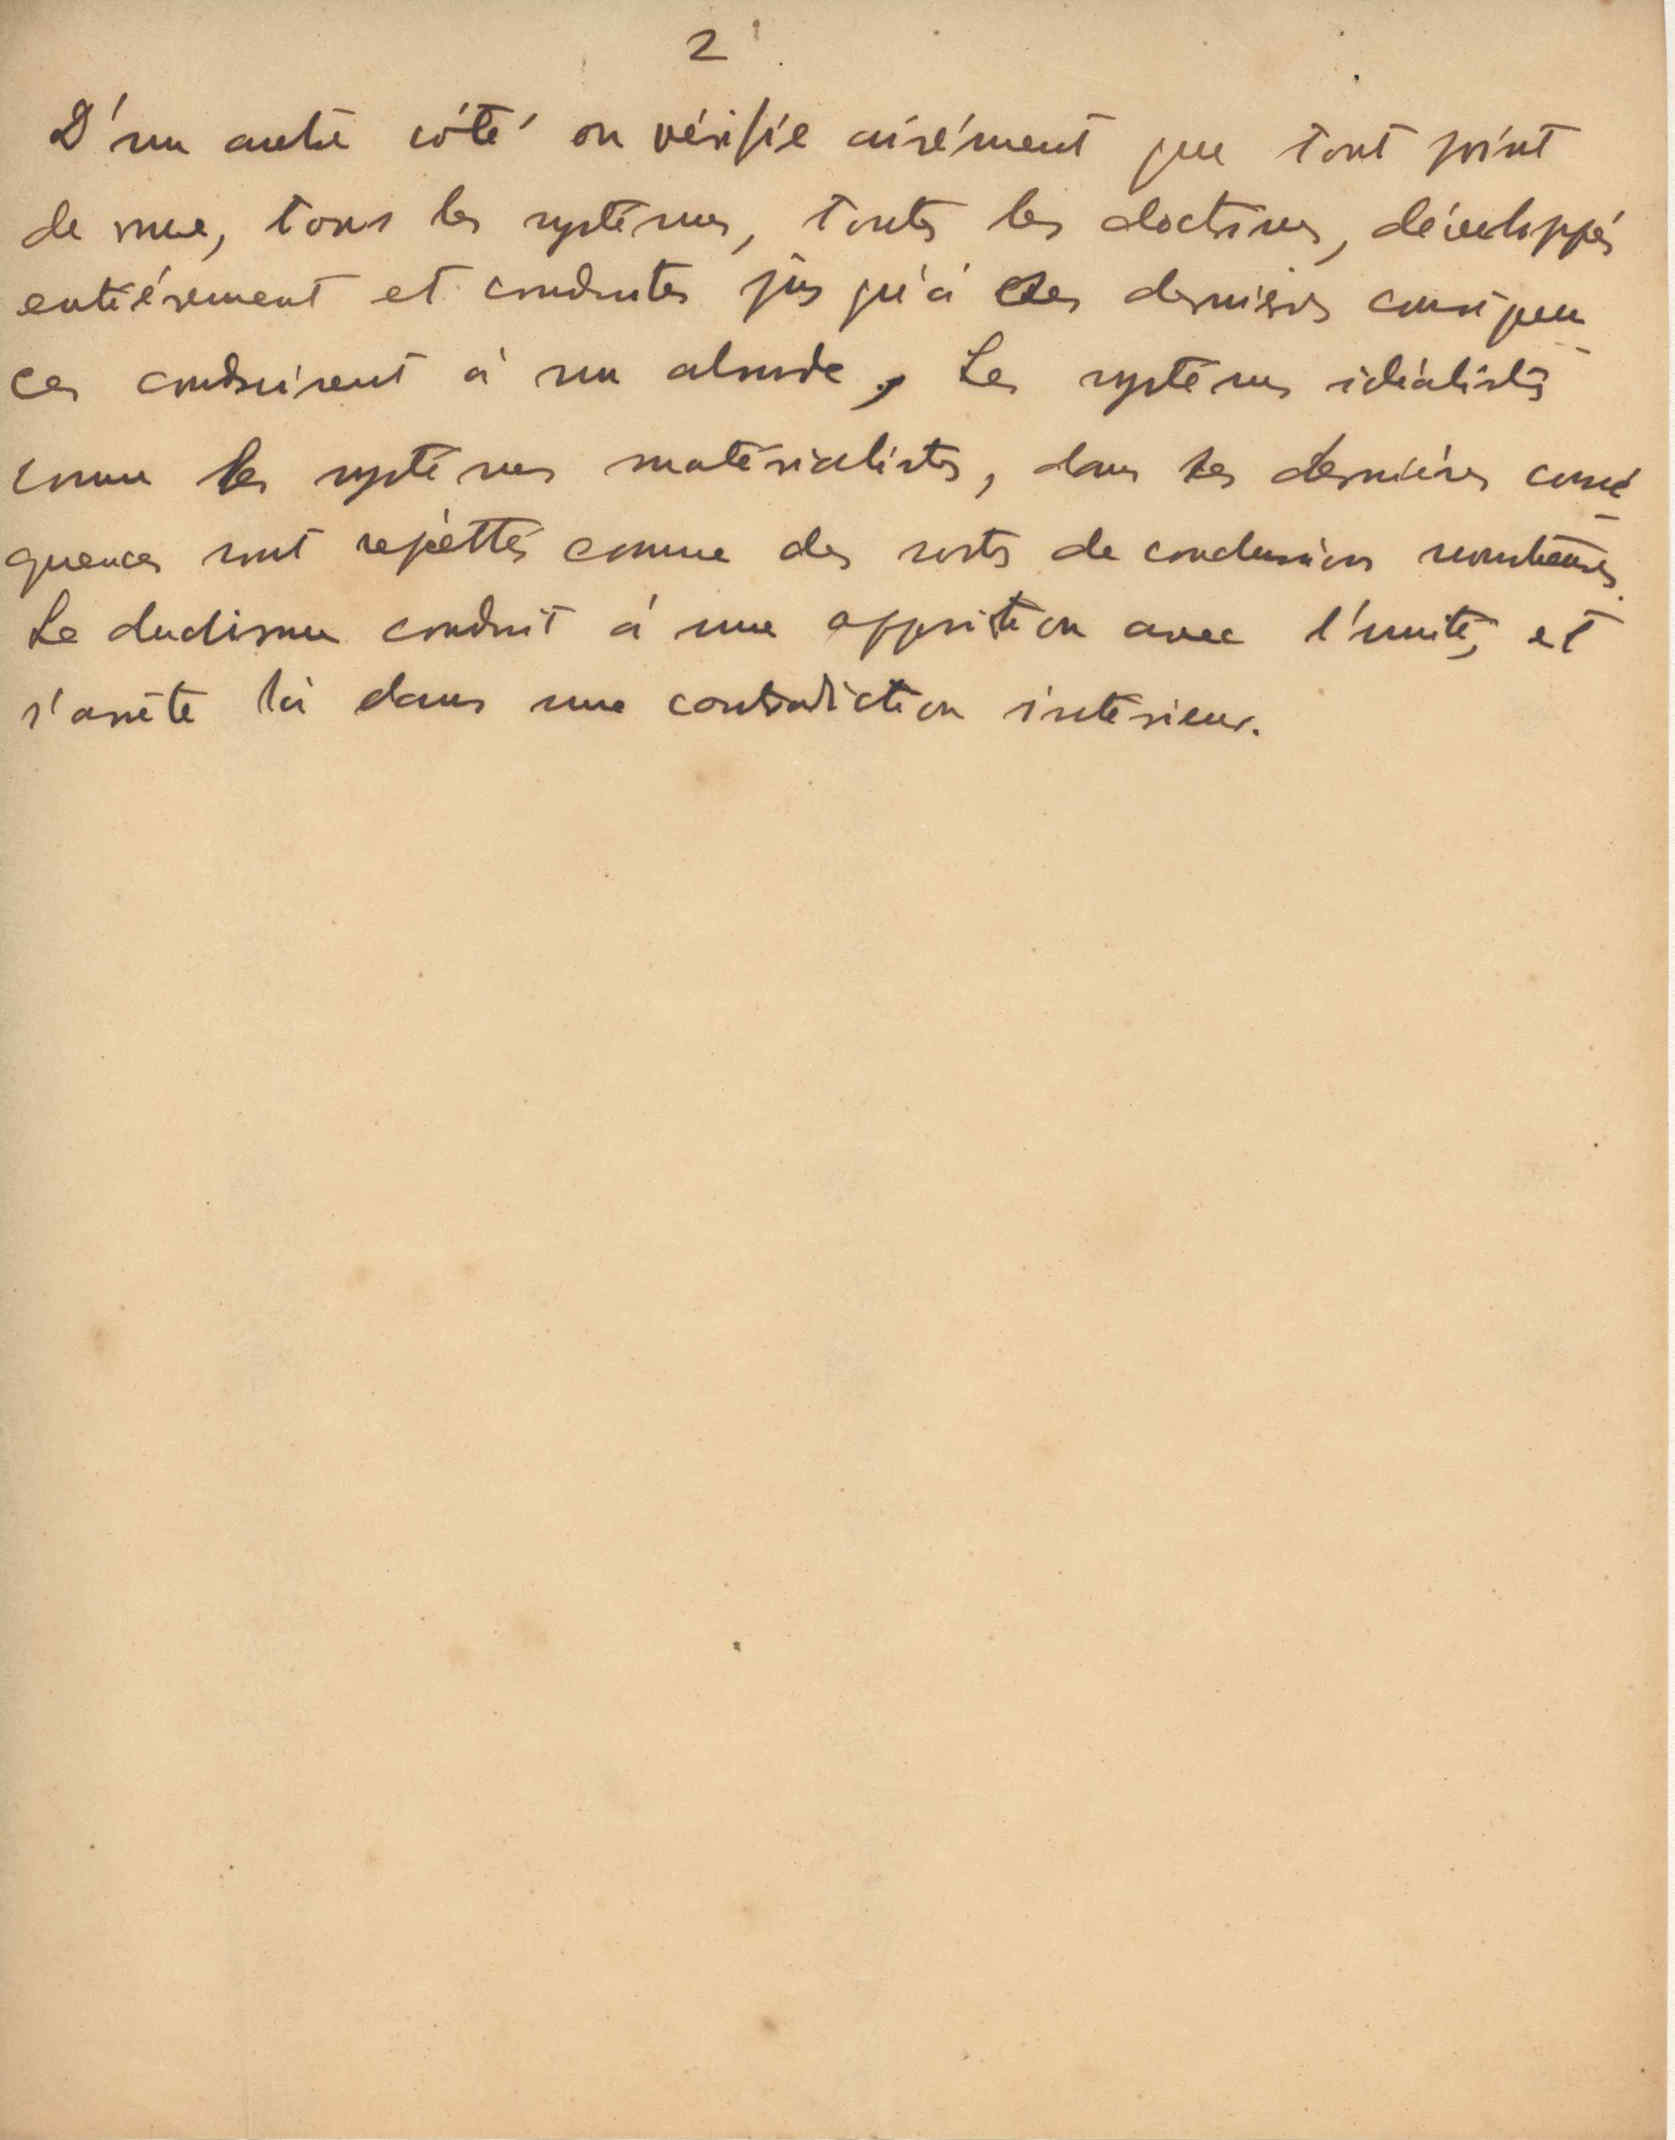 2
D'un autre côté on vérifie aisément que tout point
de vue, tous les systèmes, toutes les doctrines, développés
entièrement et conduites jus qu'à ses dernières conséquen
ces conduisent à un absurde, Les systèmes idéalistes
comme les systèmes matérialistes, dans les dernières consé
quences sont rejettés comme des sortes de conclusions
Le dualisme conduit à une opposition avec l'unité, et
s'arrête là dans une contradiction intérieur.